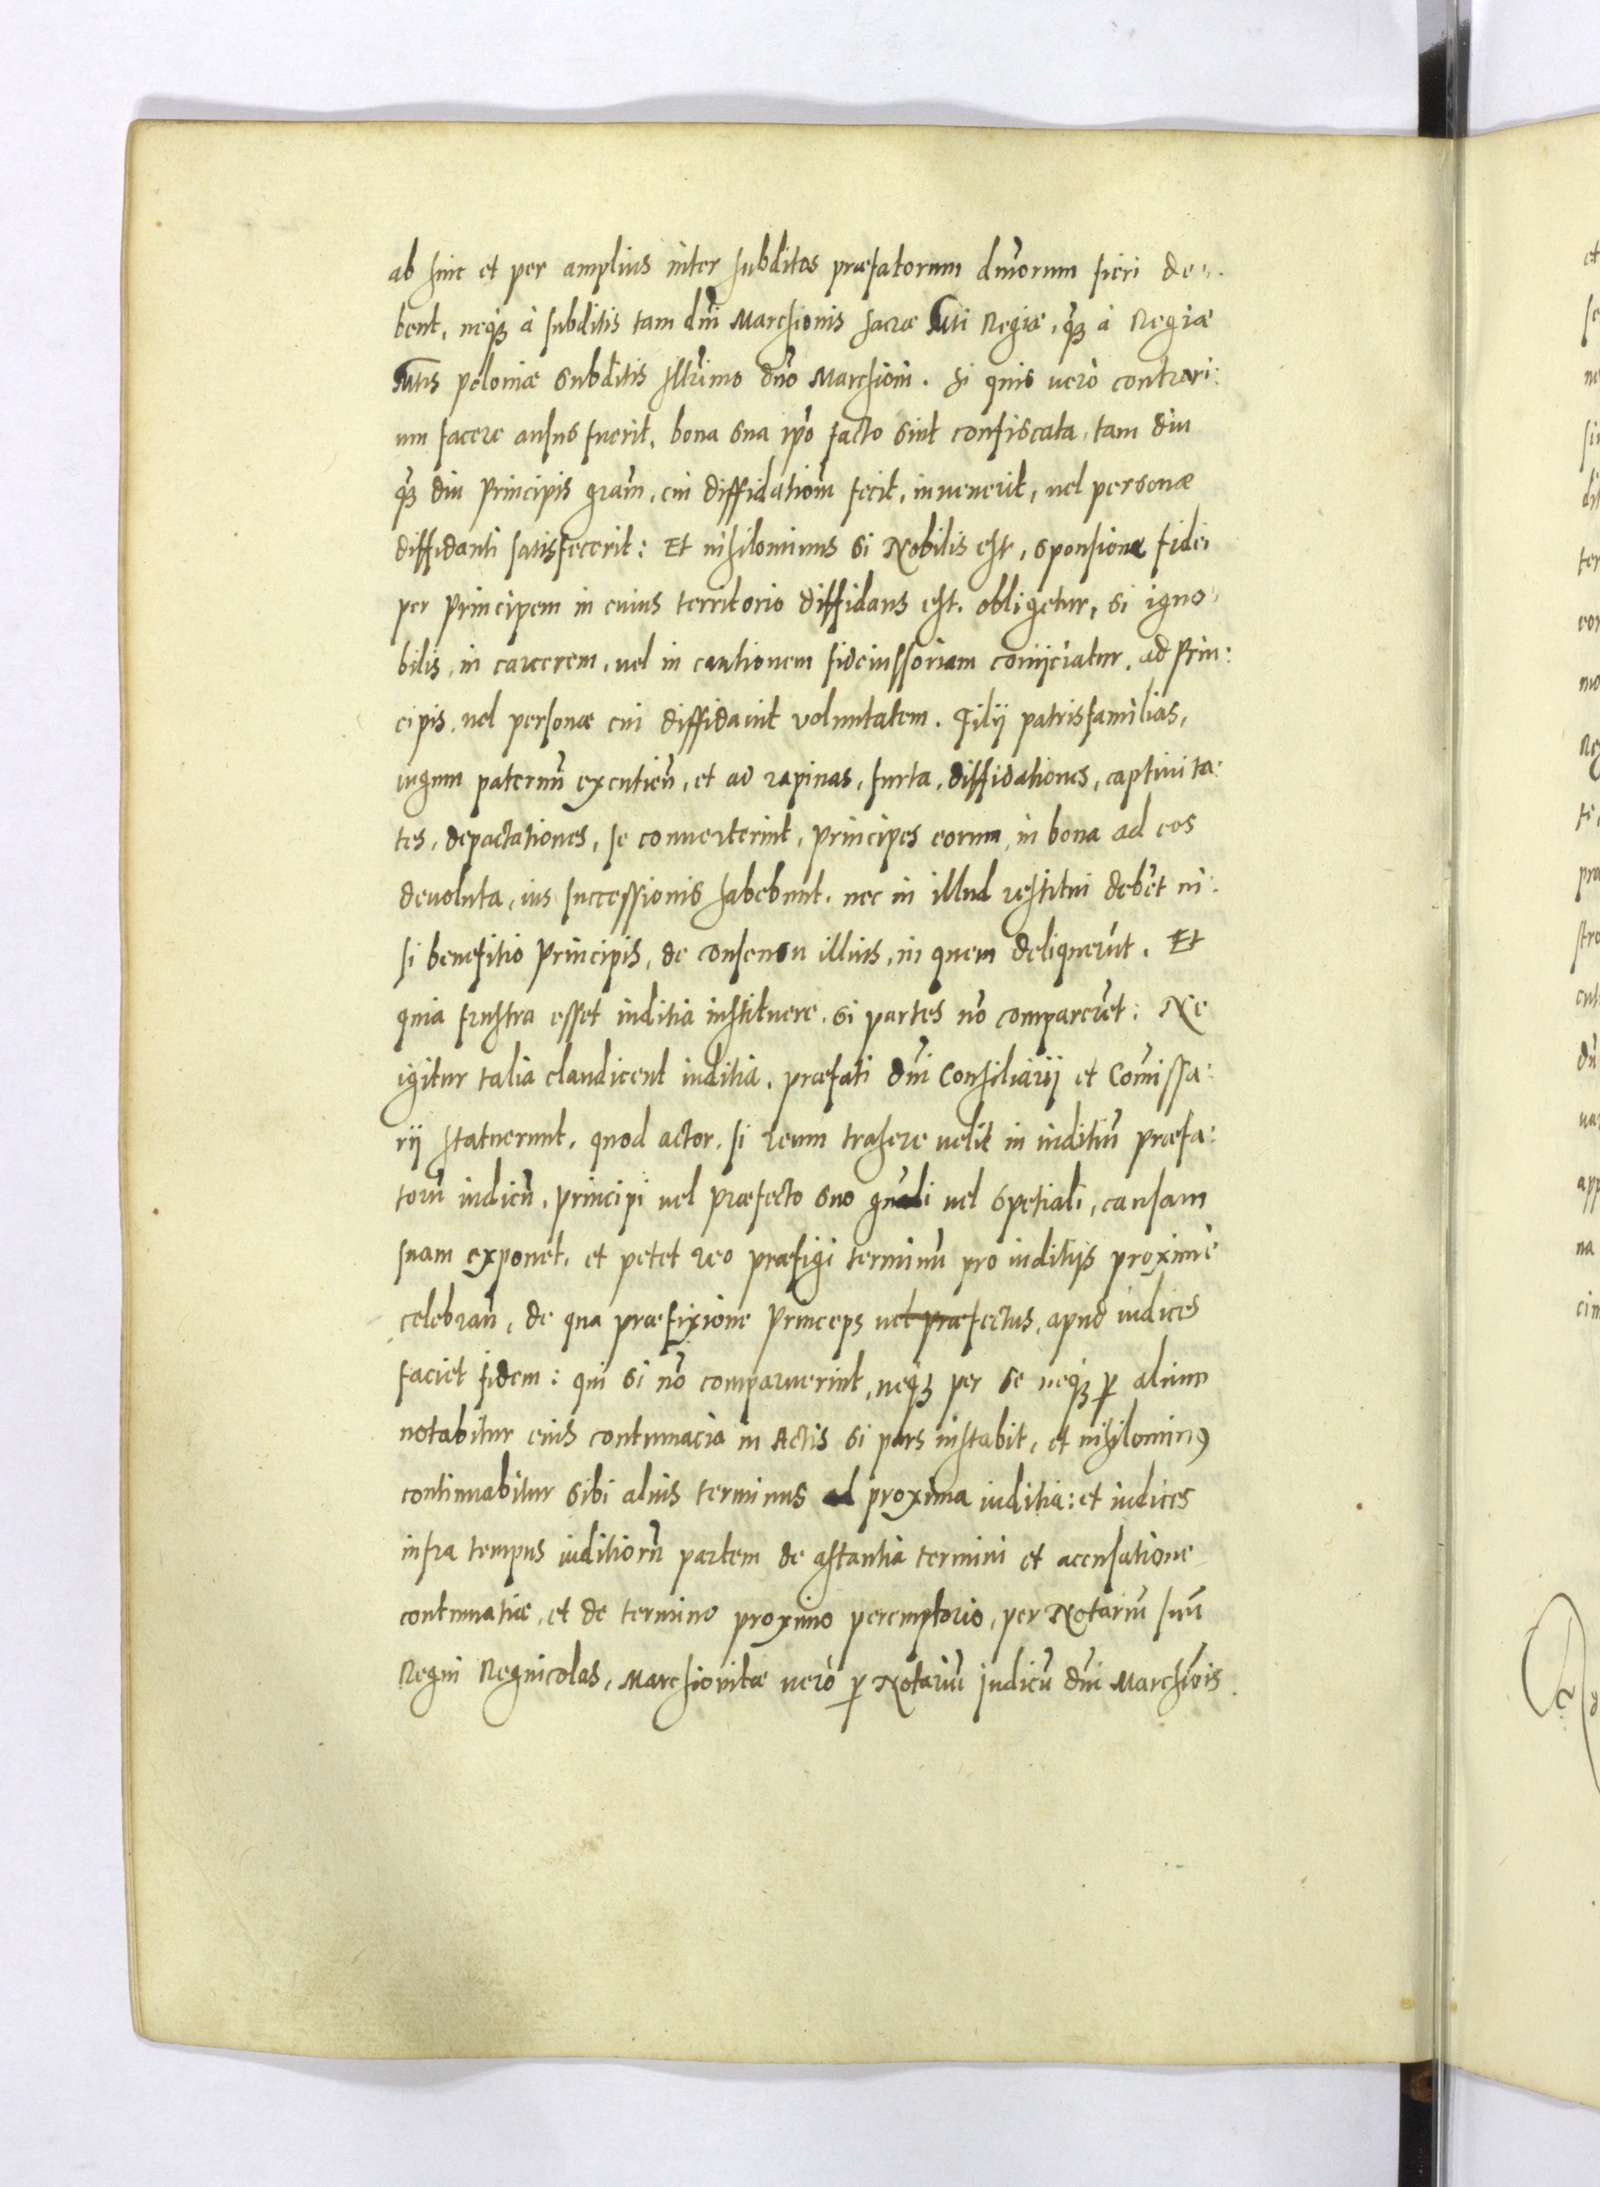 ab hinc et per amplius inter subditos præfatorum dnorum fieri de:
bent, neqȝ à subditis tam dni Marchionis sacræ Mti Regiæ, qȝ à Regiæ
Mtis poloniæ subditis Illrimo dno Marchioni. Si quis uerò contrari:
um facere ausus fuerit, bona sua ipo facto sint confiscata, tam diu
qȝ diu Principis gram, cui diffidatiom fecit, inuenerit, uel personæ
diffidanti satisfecerit: Et nihilominus si Nobilis est, sponsione fidei
per Principem in cuius territorio diffidans est, obligetur, si igno:
bilis, in carcerem, uel in cautionem fideiussoriam conijciatur, ad Prin:
cipis, uel personæ cui diffidauit voluntatem. Filij patrisfamilias,
iugum paternu excutien, et ad rapinas, furta, diffidationes, captiuita:
tes, depactationes, se conuerterint, Principes eorum, in bona ad eos
deuoluta, ius successionis habebunt, nec in illud restitui debet ni:
si benefitio Principis, de consensu illius, in quem deliquerut. Et
quia frustra esset iuditia instituere, si partes no comparcret: Ne
igitur talia claudicent iuditia, præfati dni Consiliarij et Comissa:
rij statuerunt, quod actor, si reum trahere uelit in iuditiu præfa:
toru iudicu, principi uel præfecto suo gnali uel spetiali, causam
suam exponet, et petet reo præfigi terminu pro iuditijs proximè
celebran, de qua præfixione Princeps uel præfectus, apud iudices
faciet fidem: qui si no comparuerint, neqȝ per se neqȝ p alium
notabitur eius contumacia in Actis si pars instabit, et nihilominꝰ
continuabitur sibi alius terminus ad proxima iuditia: et iudices
infra tempus iuditioru partem de astantia termini et accusatione
contumatiæ, et de termino proximo peremptorio, per Notariu suu
Regni Regnicolas, Marchionitæ uerò p Notariu iudicu dni Marchiois